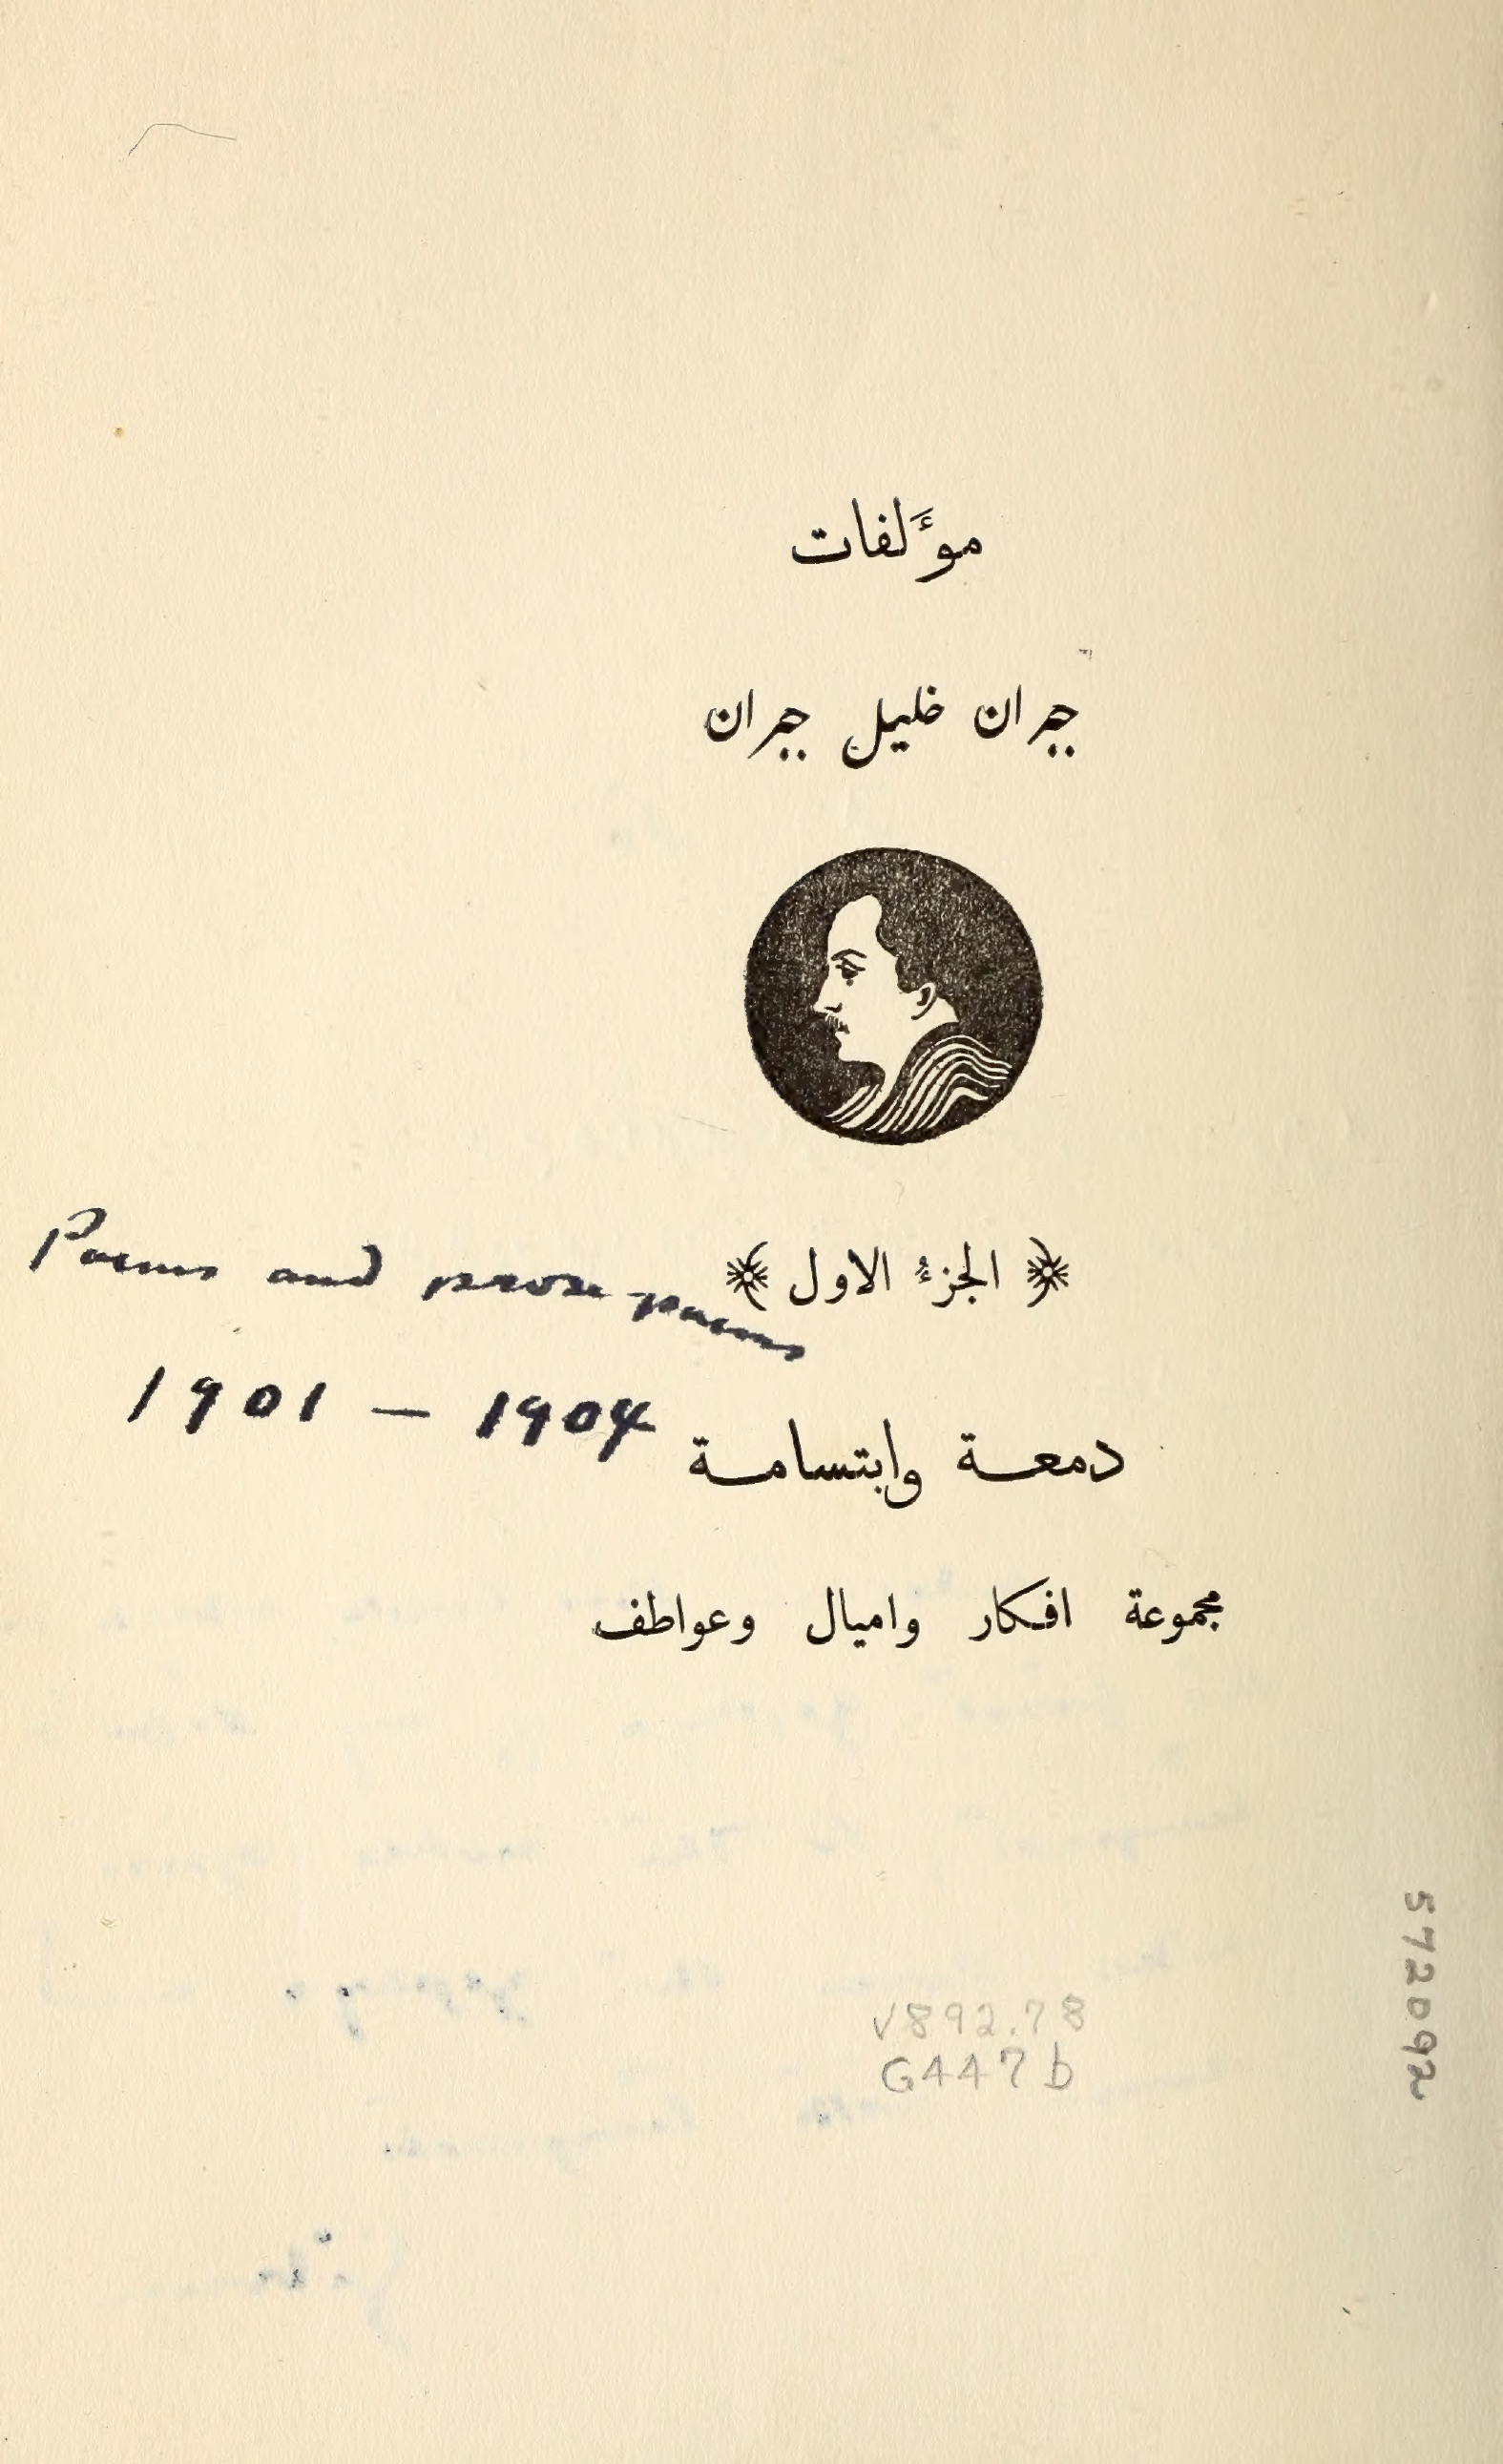 مؤَلفات
جبران خليل جبران
﴿ الجزءُ الاول ﴾
Poems and prose-poems
1901 — 1904
دمعة وابتسامة
مجموعة افكار واميال وعواطف
V892.78
G447b
572092